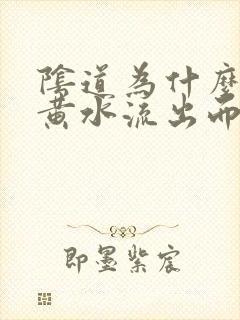 陰道為什麼
黃水流出而
即墨紫宸